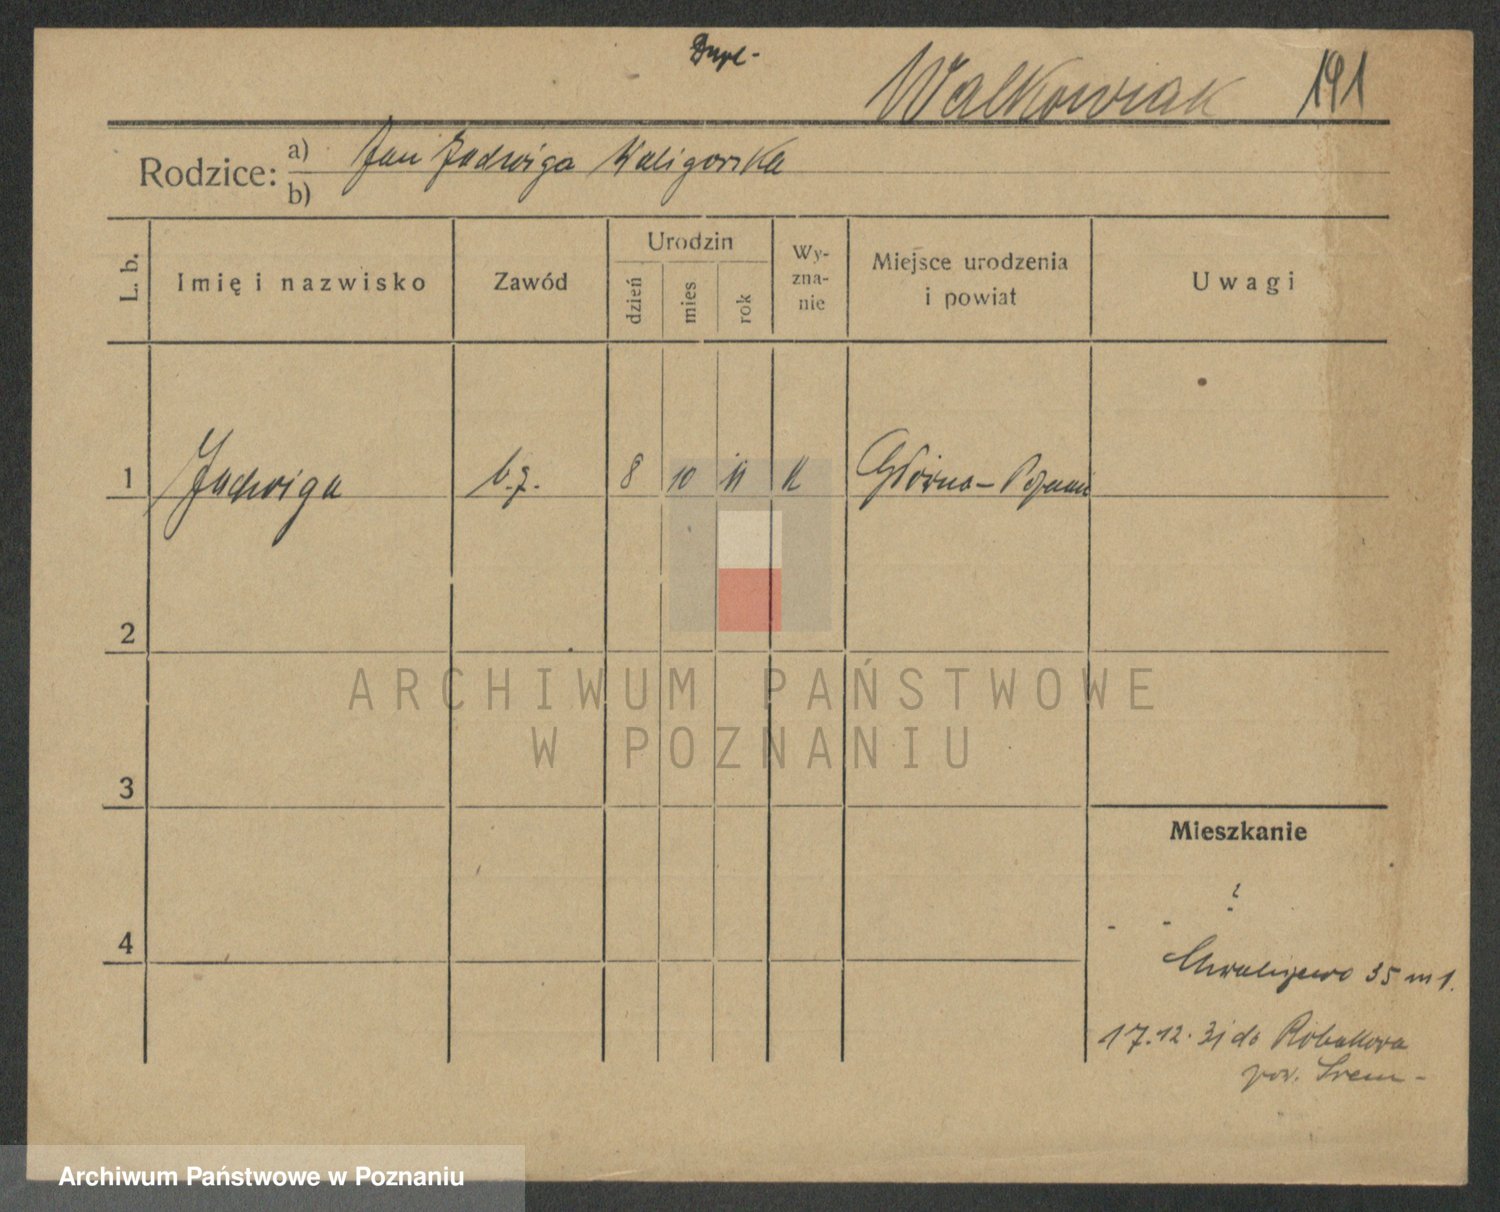 Dupl-
Walkowiak 191
Rodzice: a) Jan Jadwiga Kaligorska
b)
L. b. Imię i nazwisko Zawód Urodzin dzień mies rok Wy-zna-nie Miejsce urodzenia i powiat Uwagi
1 Jadwiga b.z. 8 10 11 k Główna - Poznań
2
ARCHIWUM PAŃSTWOWE
W POZNANIU
3
Mieszkanie
?
- - -
4
Chwaliszewo 35 m 1.
17.12.31 do Robakowa
pow. Śrem -
Archiwum Państwowe w Poznaniu